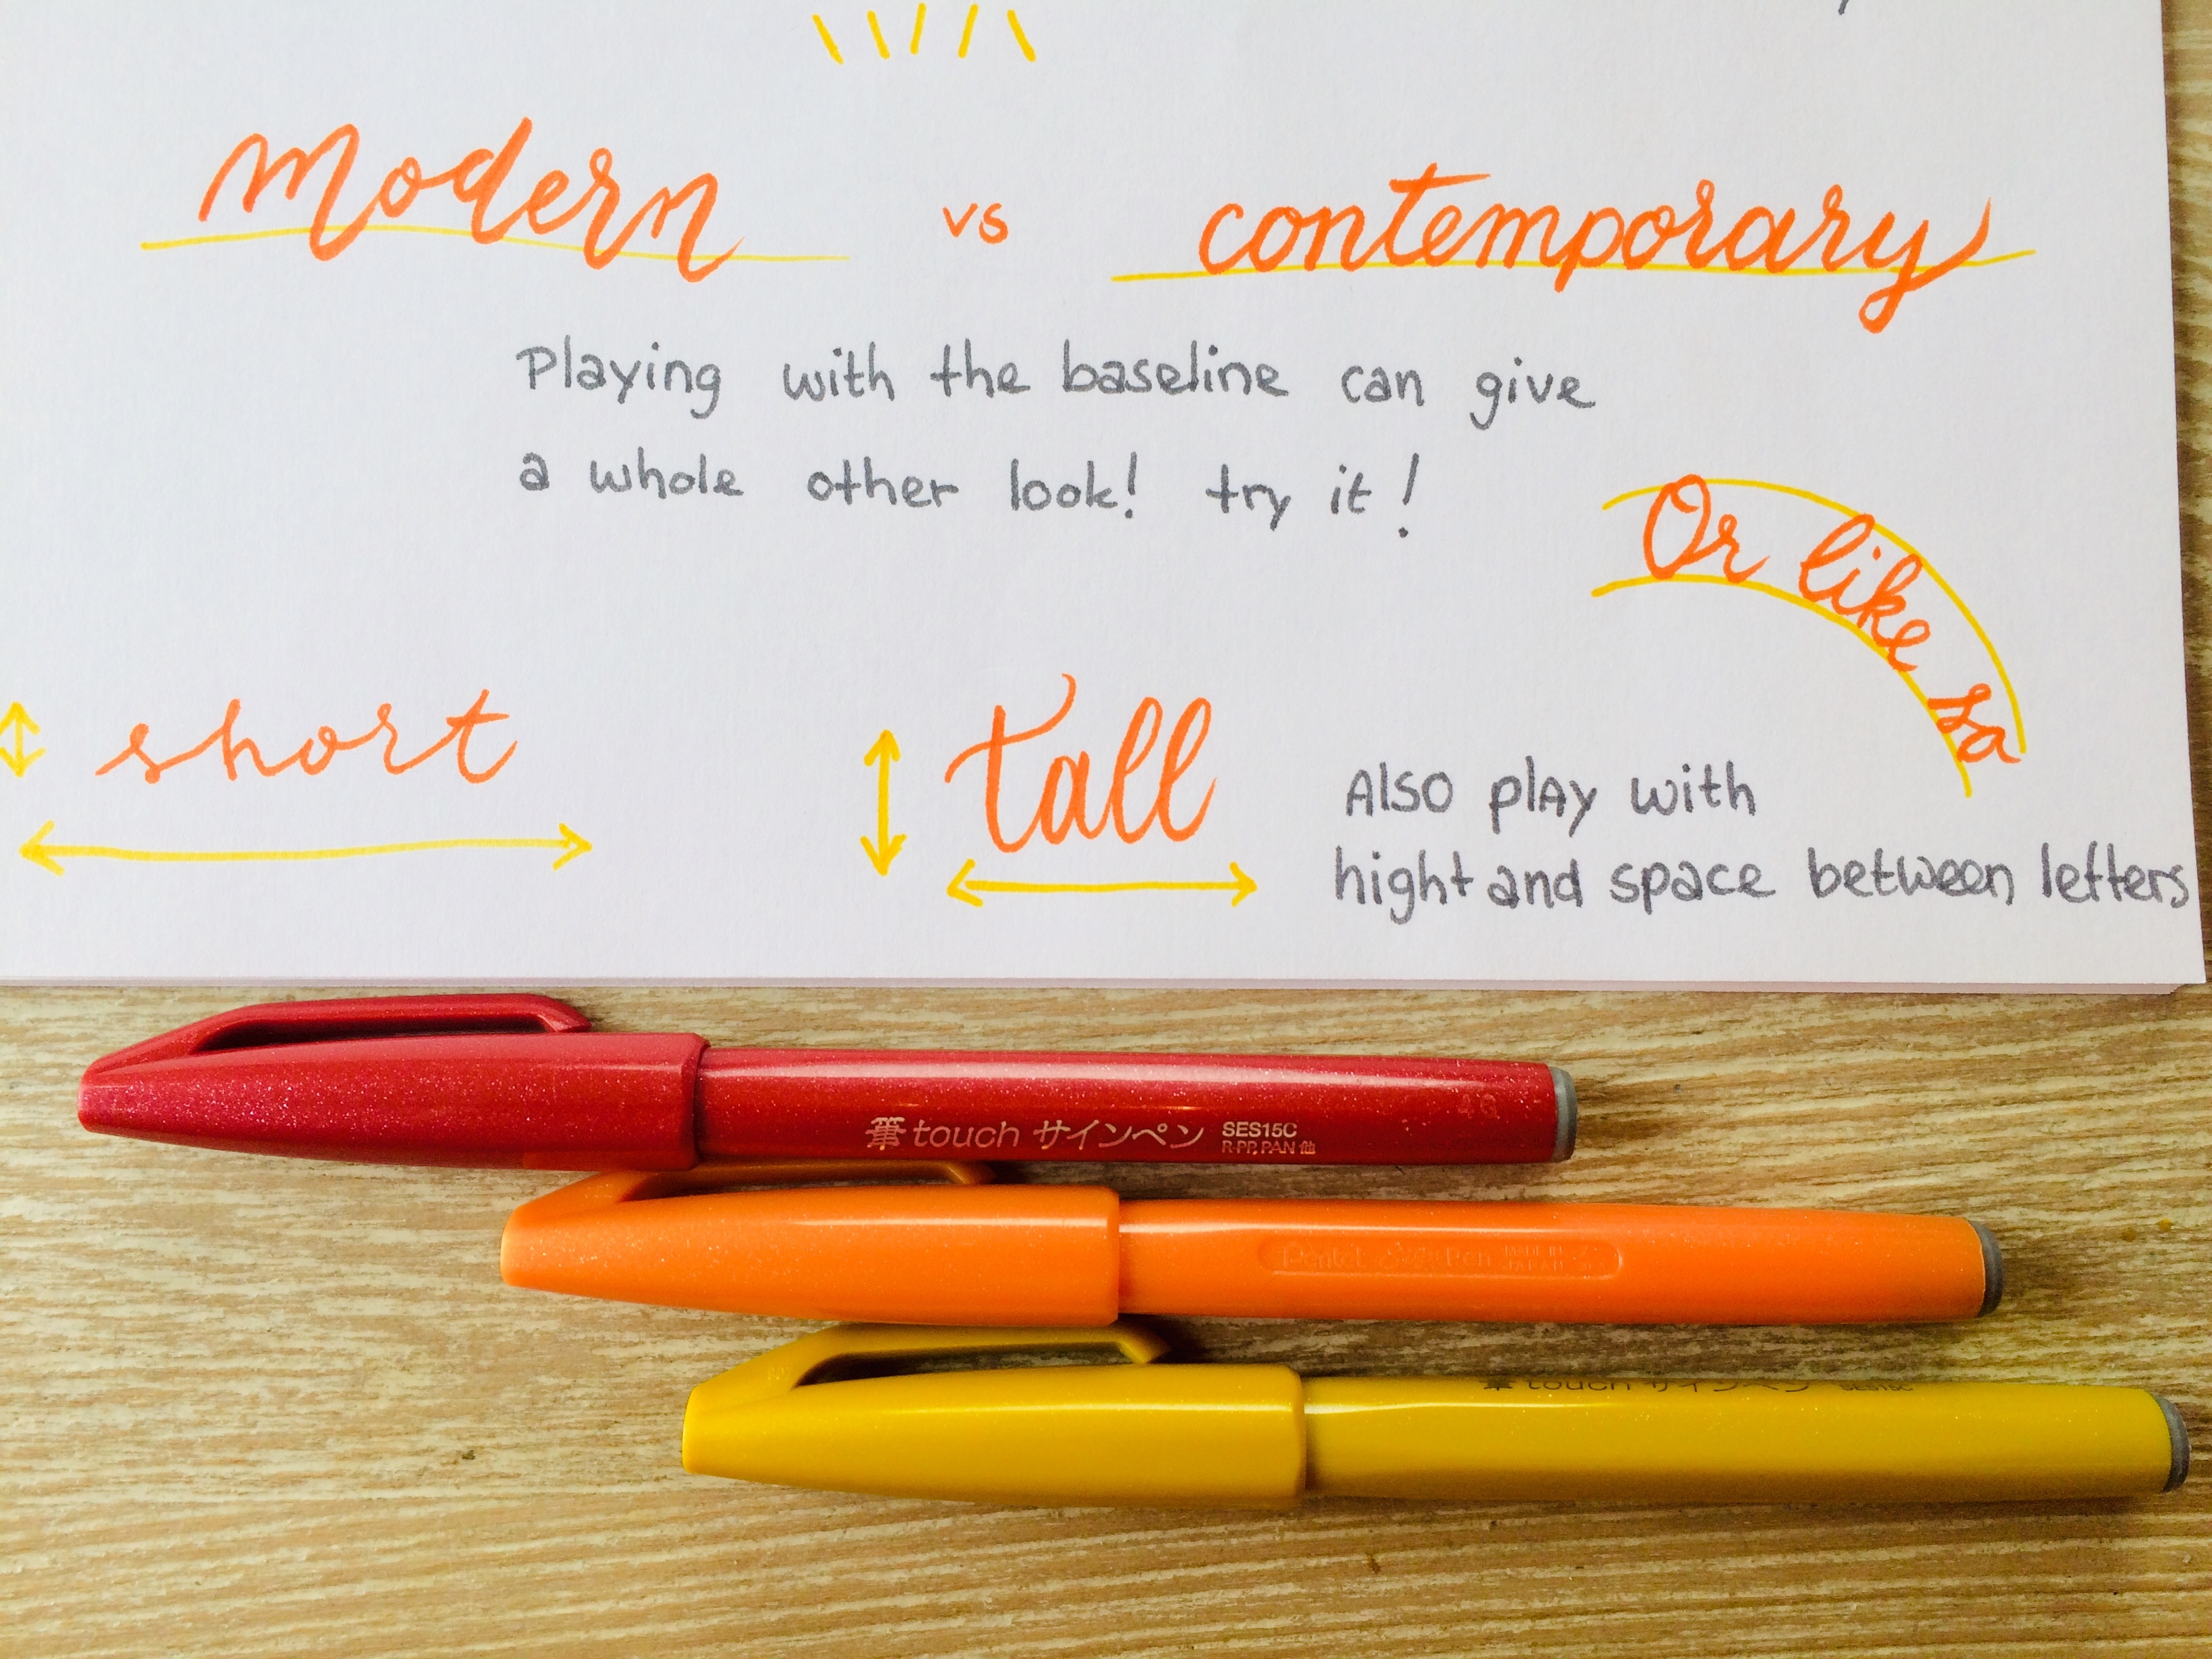 modern vs contemporary
Playing with the baseline can give
a whole other look! try it!
Or like so
short
tall
Also play with
hight and space between letters
筆touch サインペン SES15C
R-PP, PAN 他
Pentel Pen MADE IN
JAPAN
筆touch サインペン